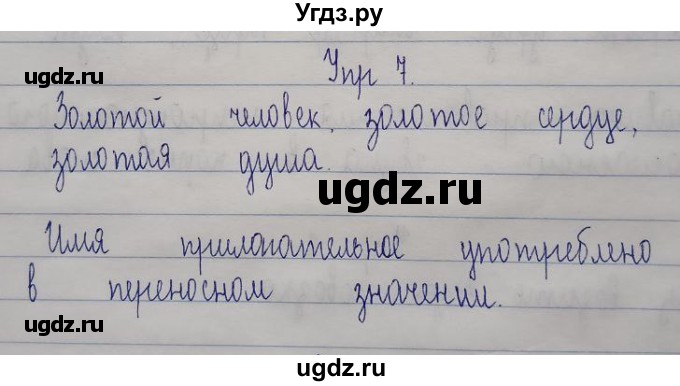 Угдз.ру
ugdz.ru ugdz.ru
Упр 7.
Золотой человек, золотое сердце,
золотая душа.
ugdz.ru
ugdz.ru
Имя прилагательное употреблено
в переносном значении.
ugdz.ru ugdz.ru
ugdz.ru